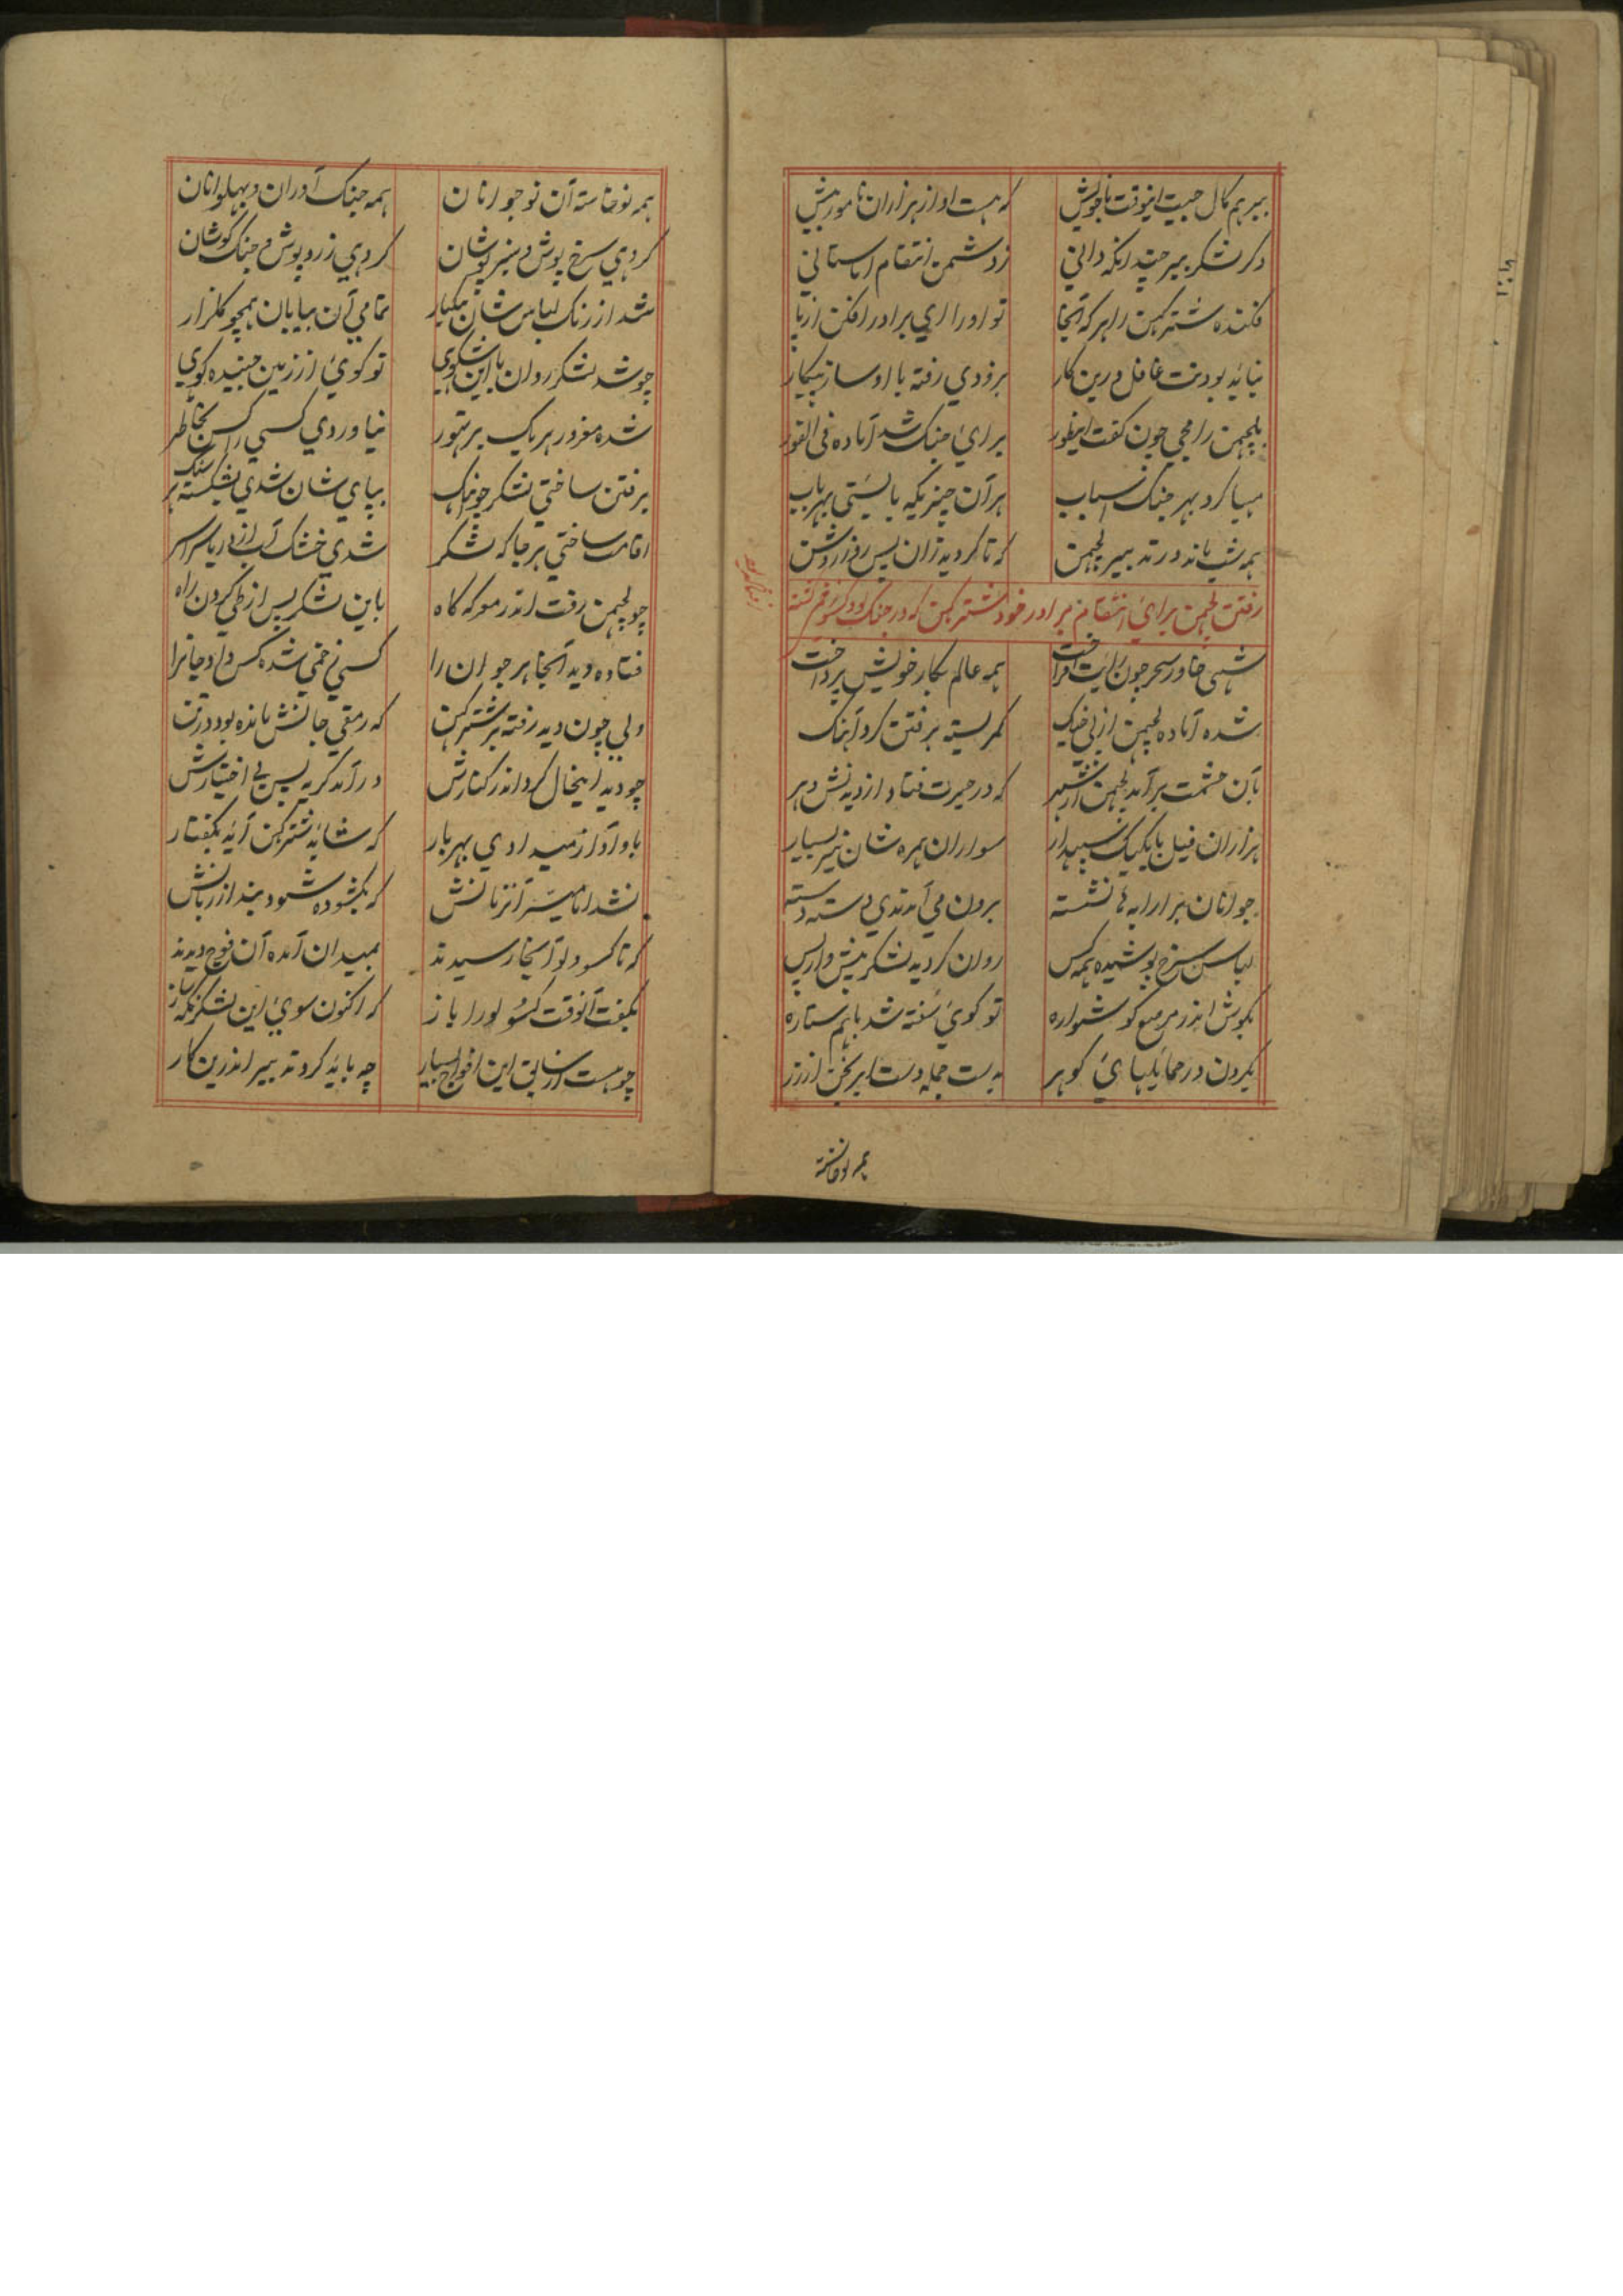 ببر هم کال جیت اینوقت باخویش که هست او از هزاران نامور بیش
دکر لشکر ببر چندانکه دانی ز دشمن انتقام ما ستانی
فکنده شترکهن را هر که آنجا تو او را ای برادر افکن از پا
نباید بودنت غافل درین کار بزودی رفته با او ساز پیکار
بلچهمن رامجی چون کفت اینطور برای جنک شد آماده فی الفور
مهیا کرد بهر جنک اسباب هر آن چیزیکه بایستی بهر باب
همه شب ماند در تدبیر لچهمن که تا کردید زان پس روز روشن
رفتن لچهمن برای انتقام برادر خود شترکهن که در جنک لو و کس زخم
شهی خاور سحر چون رایت افراخت همه عالم بکار خویش پرداخت
شده آماده لچهمن از پی جنک کمر بسته برفتن کرد آهنک
بآن حشمت برآمد لچهمن از شهر که در حیرت فتاد از دیدنش دهر
هزاران فیل با یکیک سپهدار سواران همره شان نیز بسیار
جوانان بر ارابه ها نشسته برون می آمدندی دسته دسته
لباس سرخ پوشیده همه کس روان کردید لشکر پیش و از پس
بکوش اندر مرصع کوشواره تو کوئی سفته شد باهم ستاره
بکردن در حمایلهای کوهر بدست جمله دست ابرنجن از زر
همه نوخاسته
همه نوخاسته آن نوجوانان همه جنک آوران و پهلوانان
کروهی سرخ پوش و سبز پوشان کروهی زرد پوش و جنک کوشان
شد از رنک لباس شان بیکبار تمامی آن بیابان همچو کلزار
چو شد لشکر روان با این شکوهی تو کوئی از زمین جنبیده کوهی
شده مغرور هر یک بر تهور نیاوردی کسی را کس بخاطر
برفتن ساختی لشکر چو آهنک بپای شان شدی بشکسته هر سنک
اقامت ساختی هر جا که لشکر شدی خشک آب از دریا سراسر
چو لچهمن رفت اندر معرکه کاه باین لشکر پس از طی کردن راه
فتاده دید آنجا هر جوان را کسی زخمی شده کس داد جانرا
ولی چون دید رفته بر شترکهن که رمقی جانش مانده بود در تن
چو دید اینحال کرد اندر کنارش درآمد کریه پس بی اختیارش
باو آواز میدادی بهر بار که شاید شترکهن آید بکفتار
نشد اما میسر آنزمانش که بکشوده شود بند از زبانش
که تا کس و لو آنجا رسیدند بمیدان آمده آن فوج دیدند
بکفت آنوقت کس و لو را باز که اکنون سوی این لشکر نکه ساز
چو هست ارسانی این افواج بسیار چه باید کرد تدبیر اندرین کار